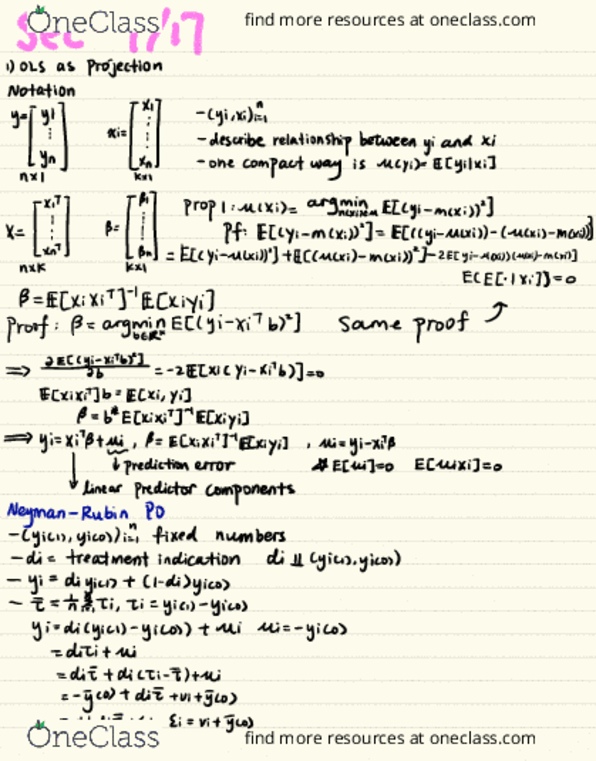 OneClass find more resources at oneclass.com
Sec 11/17
1) OLS as Projection
Notation
y = [y1 ⋮ yn] n×1 xi = [x1 ⋮ xn] k×1 -(yi,xi)ⁿi=1
-describe relationship between yi and xi
-one compact way is μ(yi)= E[yi|xi]
X = [x1ᵀ ⋮ xnᵀ] n×k β = [β1 ⋮ βn] k×1 Prop 1: μ(xi)= argmin E[(yi-m(xi))²]
Pf: E[(yi-m(xi))²] = E[((yi-μ(xi))-(μ(xi)-m(xi))]
= E[(yi-μ(xi))²]+E[(μ(xi)-m(xi))²]-2E[(yi-μ(xi))(μ(xi)-m(xi))]
E(E[·|xi])=0
β = E[xixiᵀ]⁻¹E[xiyi]
Proof: β = argmin E[(yi-xiᵀb)²] Same proof ↗
b∈ℝᵏ
⇒ ∂E[(yi-xiᵀb)²]/∂b = -2E[xi(yi-xiᵀb)]=0
E[xixiᵀ]b = E[xi,yi]
β = b* E[xixiᵀ]⁻¹E[xiyi]
⇒ yi=xiᵀβ+ui, β= E[xixiᵀ]⁻¹E[xiyi] , ui=yi-xiᵀβ
↓ prediction error * E[ui]=0 E[uixi]=0
↓ linear predictor components
Neyman-Rubin PO
-(yi(1),yi(0))ⁿi=1 fixed numbers
-di = treatment indication di ⫫ (yi(1),yi(0))
- yi = diyi(1) + (1-di)yi(0)
- τ̄ = 1/n Σ τi, τi = yi(1)-yi(0)
yi=di(yi(1)-yi(0)) + ui ui=-yi(0)
=diτi+ui
=diτ̄ + di(τi-τ̄)+ui
=-ȳ(0) + diτ̄ +vi+ȳ(0)
Σi = vi+ȳ(0)
OneClass find more resources at oneclass.com